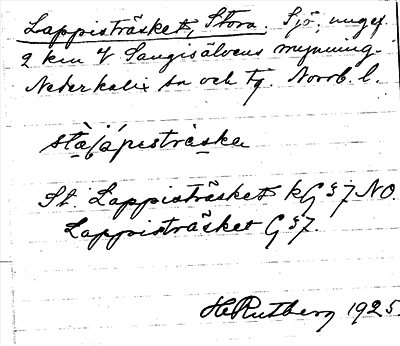 Lappisträsket, Stora. Sjö, ungef.
2 km V Sangisälvens mynning.
Nederkalix sn och tg. Norrb. l.
St. Lappisträsket kG 57 NO.
Lappisträsket G 57.
H Rutberg 1925.